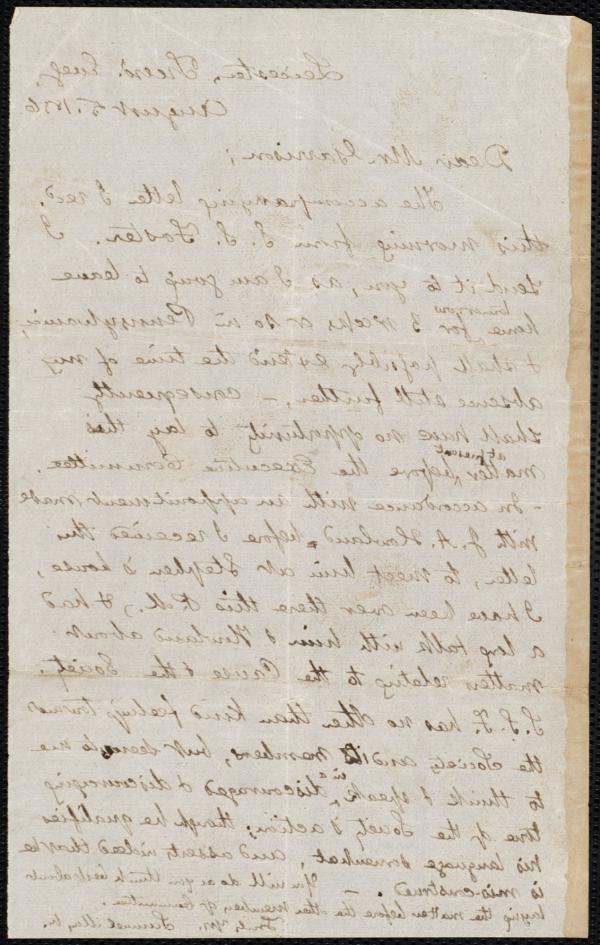 Leicester, Tuesd. Eveg,
August 5. 1856
Dear Mr. Garrison;
The accompanying letter I recd.
this morning from S. S. Foster. I
send it to you, as I am going to leave
home tomorrow for 3 weeks or so in Pennsylvania,
& shall possibly extend the time of my
absence still further, - consequently
shall have no opportunity to lay this
matter, at present before the Executive Committee.
- In accordance with an appointment made
with J. A. Howland before I received this
letter, to meet him at Stephen's house,
I have been over there this P.M., & had
a long talk with him & Howland about
matters relating to the Cause & the Society.
S. S. F. has no other than kind feelings toward
the Society and its members, but seems to me
to think & speak, in a discouraged & discouraging
tone of the Society's action; though he qualifies
his language somewhat, and asserts indeed that he
is misconstrued. - You will do as you think best about
laying the matter before the other members of Committee.
Truly yrs, Samuel May, Jr.